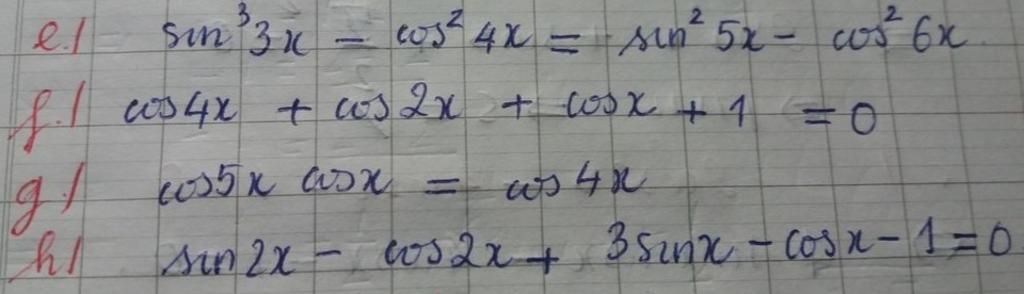 e./ sin³3x - cos²4x = sin²5x - cos²6x
f./ cos4x + cos2x + cosx + 1 = 0
g./ cos5x cosx = cos4x
h/ sin2x - cos2x + 3sinx - cosx - 1 = 0